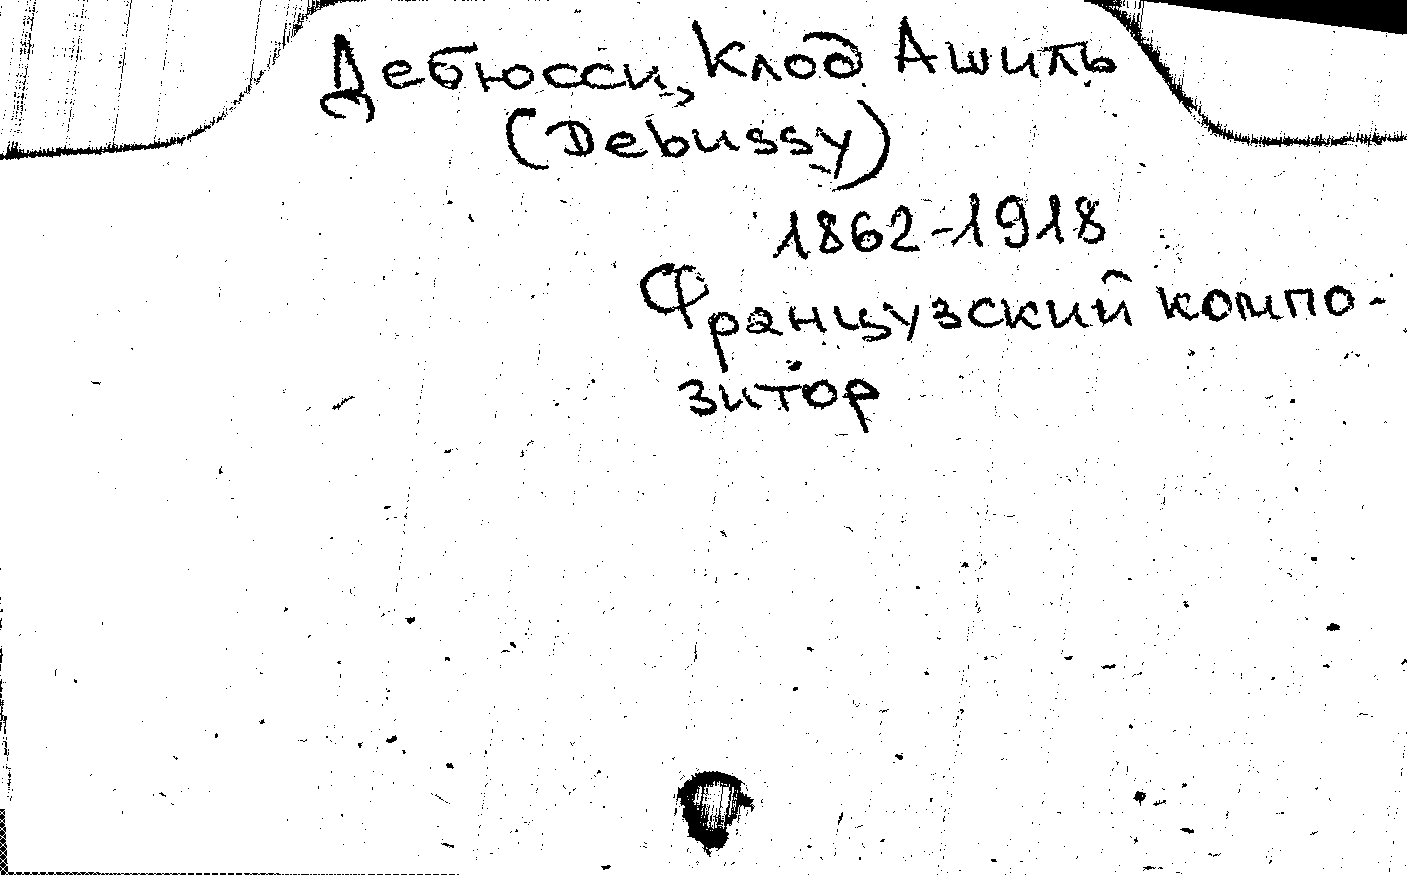 Дебюсси, Клод Ашиль
(Debussy)
1862-1918
Французский компо-
зитор